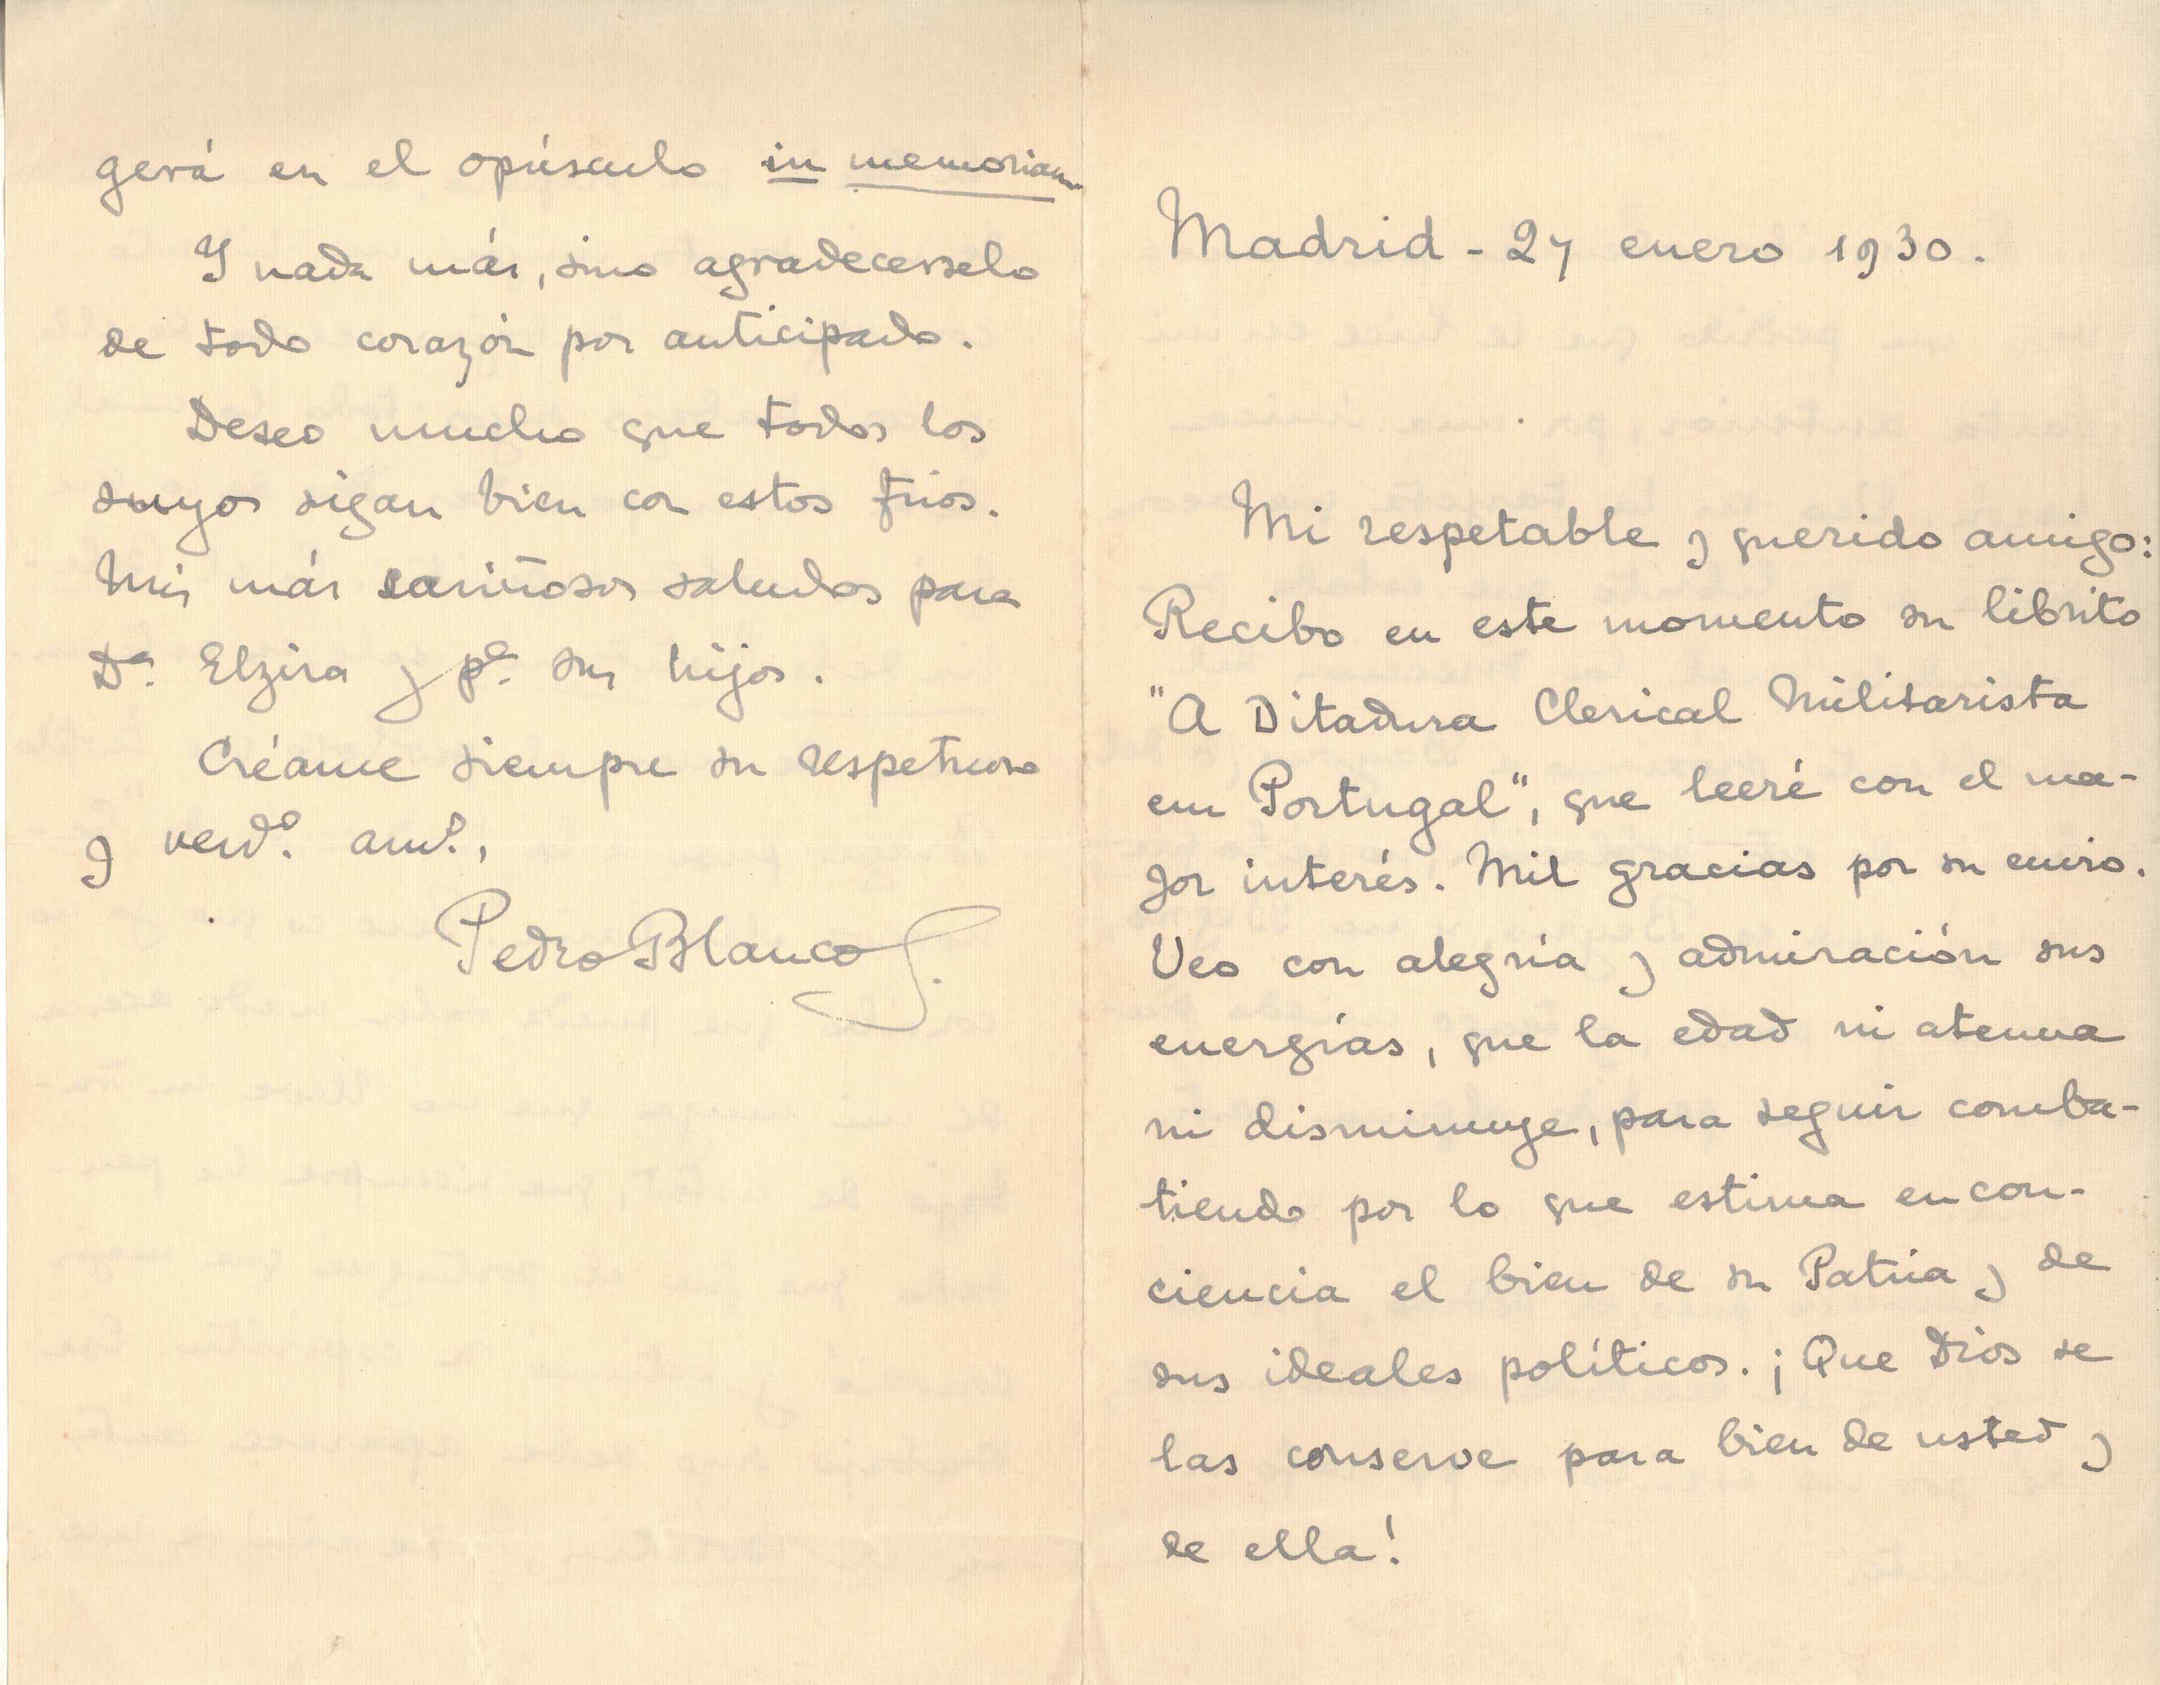 Madrid - 27 enero 1930.
Mi respetable y querido amigo:
Recibo en este momento su librito
"A Ditadura Clerical Militarista
em Portugal", que leeré con el ma-
yor interés. Mil gracias por su envio.
Veo con alegría y admiración sus
energías, que la edad ni atenua
ni disminuye, para seguir comba-
tiendo por lo que estima en con-
ciencia el bien de su Patria y de
sus ideales políticos. ¡Que Dios se
las conserve para bien de usted y
de ella!
gerá en el opúsculo in memoriam.
Y nada más, sino agradecerselo
de todo corazón por anticipado.
Deseo mucho que todos los
suyos sigan bien con estos frios.
Mis más cariñosos saludos para
Dª. Elzira y pª. sus hijos.
Créame siempre su respetuoso
y verdº. amº.,
Pedro Blanco S.